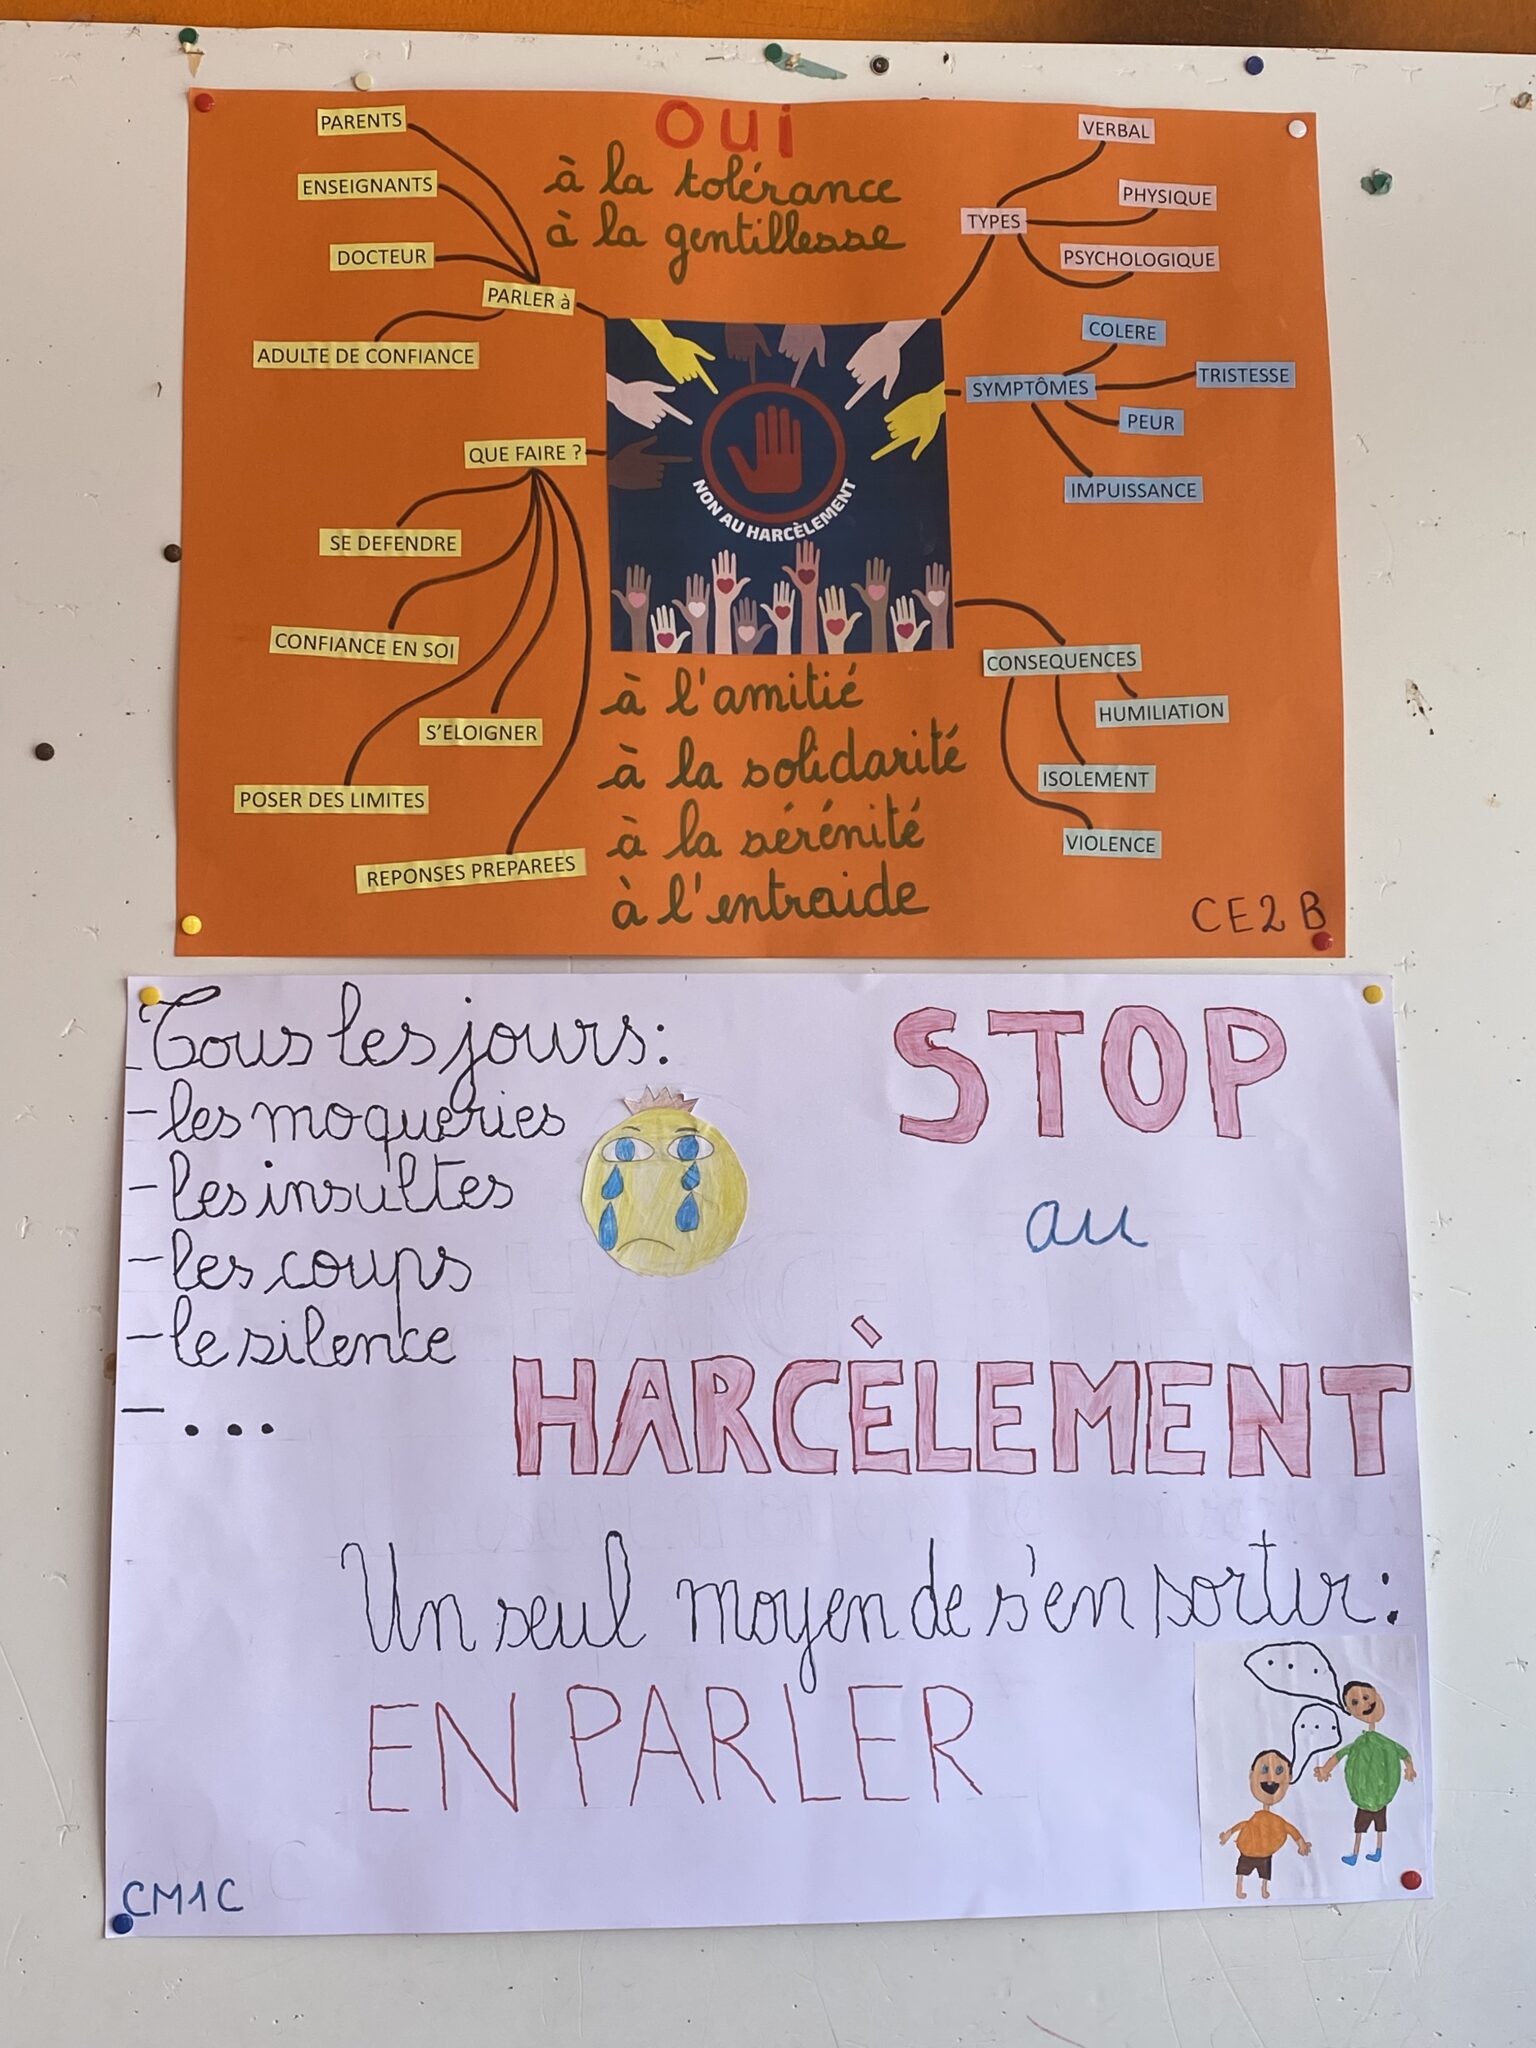 OUI
à la tolérance
à la gentillesse
PARLER à
PARENTS
ENSEIGNANTS
DOCTEUR
ADULTE DE CONFIANCE
QUE FAIRE ?
SE DEFENDRE
CONFIANCE EN SOI
S'ELOIGNER
POSER DES LIMITES
REPONSES PREPAREES
NON AU HARCÈLEMENT
TYPES
VERBAL
PHYSIQUE
PSYCHOLOGIQUE
SYMPTÔMES
COLERE
TRISTESSE
PEUR
IMPUISSANCE
CONSEQUENCES
HUMILIATION
ISOLEMENT
VIOLENCE
à l'amitié
à la solidarité
à la sérénité
à l'entraide
CE2 B
Tous les jours:
- les moqueries
- les insultes
- les coups
- le silence
- ...
STOP
au
HARCÈLEMENT
Un seul moyen de s'en sortir:
EN PARLER
...
...
CM1C